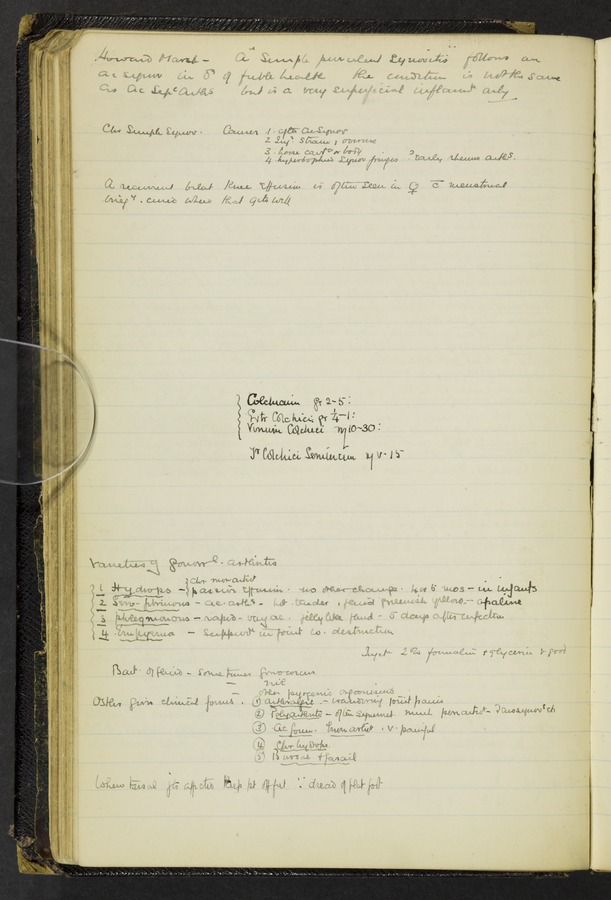 Howard Marsh - A "Simple purulent Synovitis" follows an
ac synov in of feeble health the condition is not the same
as Ac Sepc Arths but is a very superficial inflamt only
Chr Simple Synov. Causes 1. after Ac Synov
2 Inj. Strains, overuse
3. loose cart or body
4. hypertrophied Synov fringes ? early rheum arths.
A recurrent bilat Knee effusion is often seen in ♀ c̄ menstrual
irregy. cured when that gets well
Colchicin gr 2-5:
Extr Colchici gr ¼-1:
Vinum Colchici ♏10-30:
Tr Colchici Seminum ♏ v-15
Varieties of gonorrl. arthritis
1 Hydrops - chr monartic passive effusion. no other change. 4 or 6 mos - in infants
2 Sero-fibrinous - ac. arths - hot tender. fluid greenish yellow - opaline
3 phlegmonous - rapid - very ac. jelly like fluid - 5 days after infection
4 Empyema - suppurt in joint co. destruction
Inject 2% formalin & glycerin v good
Bact. of fluid - Sometimes gonococcus
nil
other pyogenic organisms
Osler gives clinical forms. ① arthralgic - wandering joint pains
② Polyarthritic -
③ Ac form. v. painful
④ Chr hydrops
⑤ Bursae & fascial
When tarsal jts affected keep pt off ft ∵ dread of flat foot